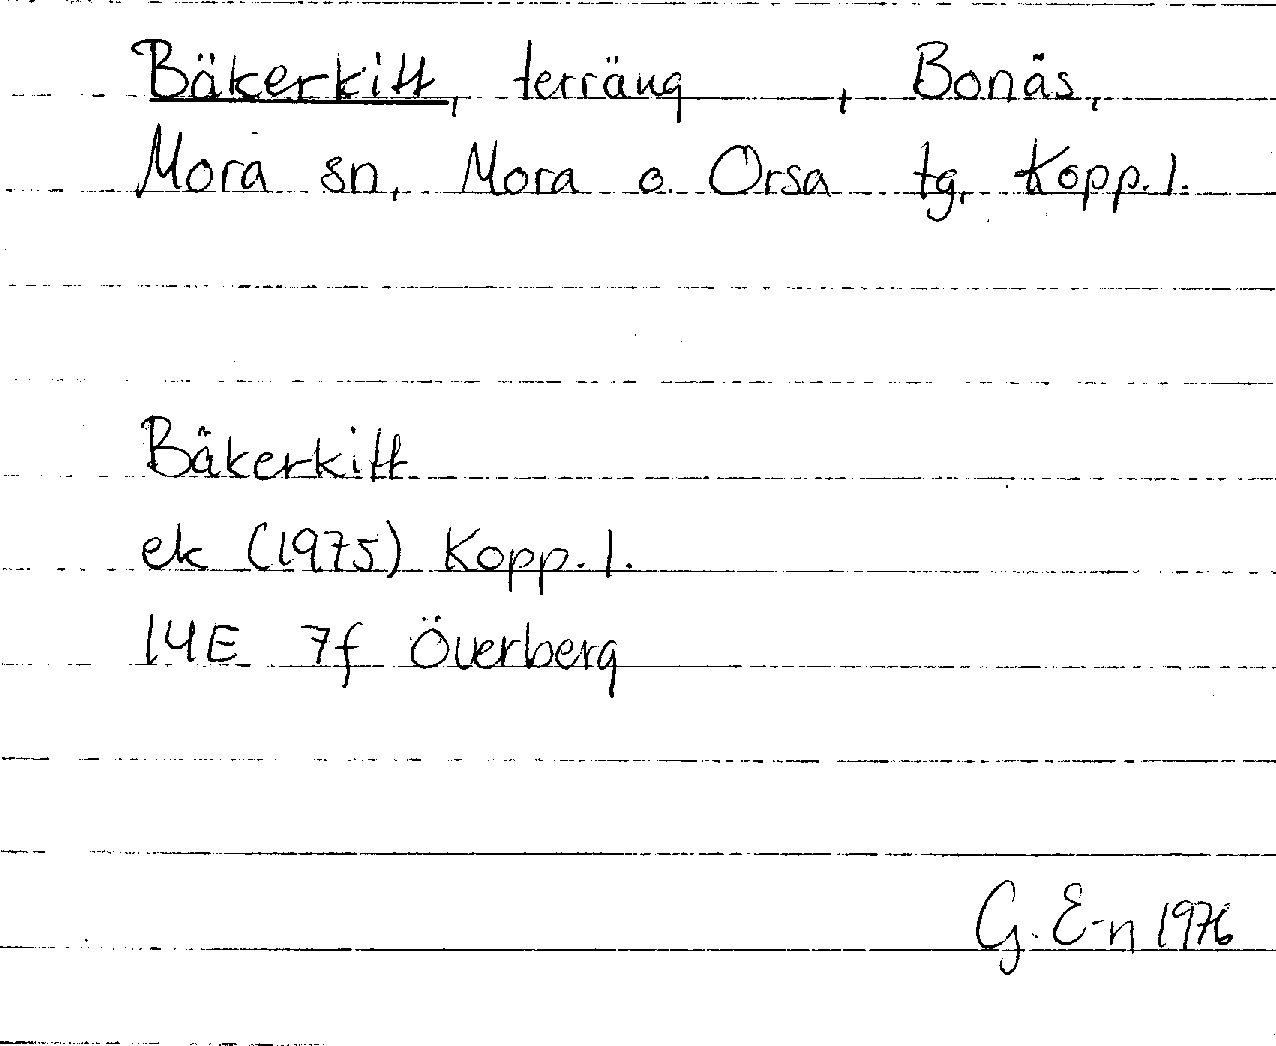 Bäkerkitt, terräng , Bonäs,
Mora sn, Mora o Orsa tg, Kopp. l.
Bäkerkitt
ek (1975) Kopp. l.
14E 7f Överberg
G. E-n 1976